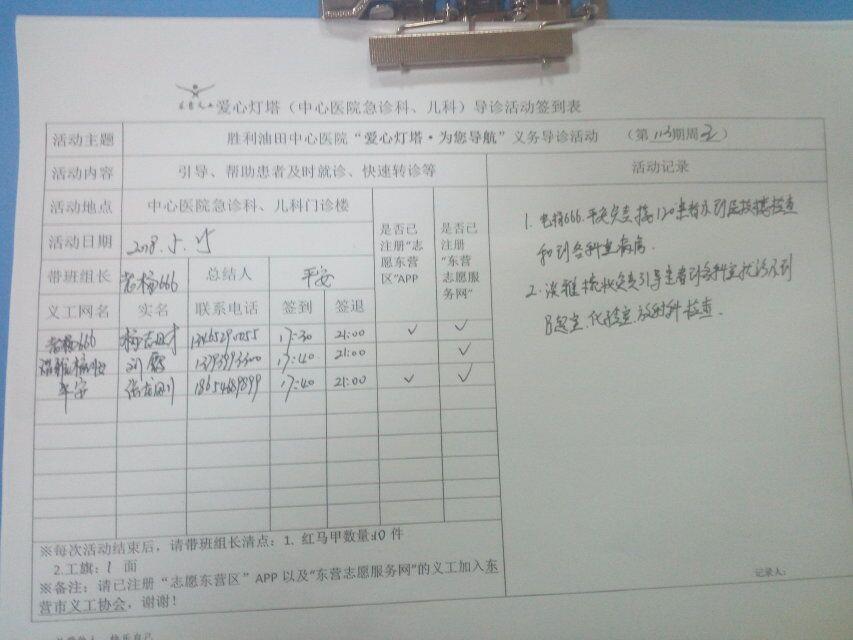 爱心灯塔（中心医院急诊科、儿科）导诊活动签到表
活动主题 胜利油田中心医院“爱心灯塔·为您导航”义务导诊活动 （第113期周五）
活动内容 引导、帮助患者及时就诊、快速转诊等 活动记录
活动地点 中心医院急诊科、儿科门诊楼
活动日期 2018.5.25
是否已注册“志愿东营区”APP
是否已注册“东营志愿服务网”
带班组长 老杨666 总结人 平安
义工网名 实名 联系电话 签到 签退
老杨666 17:30 21:00 ✓ ✓
刘 17:40 21:00 ✓
平安 18654689899 17:40 21:00 ✓ ✓
1. 老杨666.平安负责接120患者及到
和到各科室病房.
2. 负责引导患者到各科室就诊及到
B超室.化验室.放射科检查.
※每次活动结束后，请带班组长清点：1、红马甲数量:10件
2.工旗：1 面
※备注：请已注册“志愿东营区”APP 以及“东营志愿服务网”的义工加入东
营市义工协会，谢谢！
记录人：